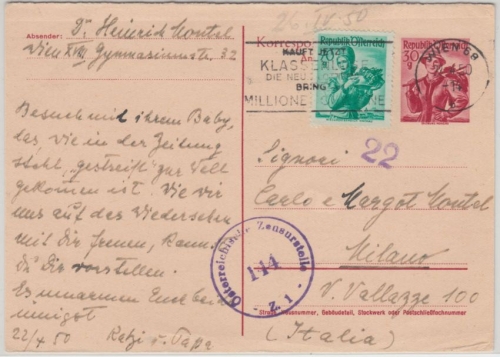 26.IV.50
Absender: Dr. Heinrich Montel
Wien XVIII, Gymnasiumstr. 32
Besuch mit ihrem Baby,
das, wie in der Zeitung
stehl, "gestreift" zur Welt
gekommen ist. Wie wir
uns auf das Wiedersehen
mit Dir freuen, kann
Dir vorstellen.
Es umarmen Euch
22/4 50 Ratzi u. Papa
Korrespo
KAUFT JETZT
KLASSEN
DIE NEU
BRINGT
MILLIONEN
Republik Österreich
Republik
30
WIEN 68
22
Signori
Carlo e Margot Montel
Milano
V. Vallazze 100
Straße, Hausnummer, Gebäudeteil, Stockwerk oder Postschließfachnummer
(Italia)
Österreichische Zensurstelle
144
- Z 1 -